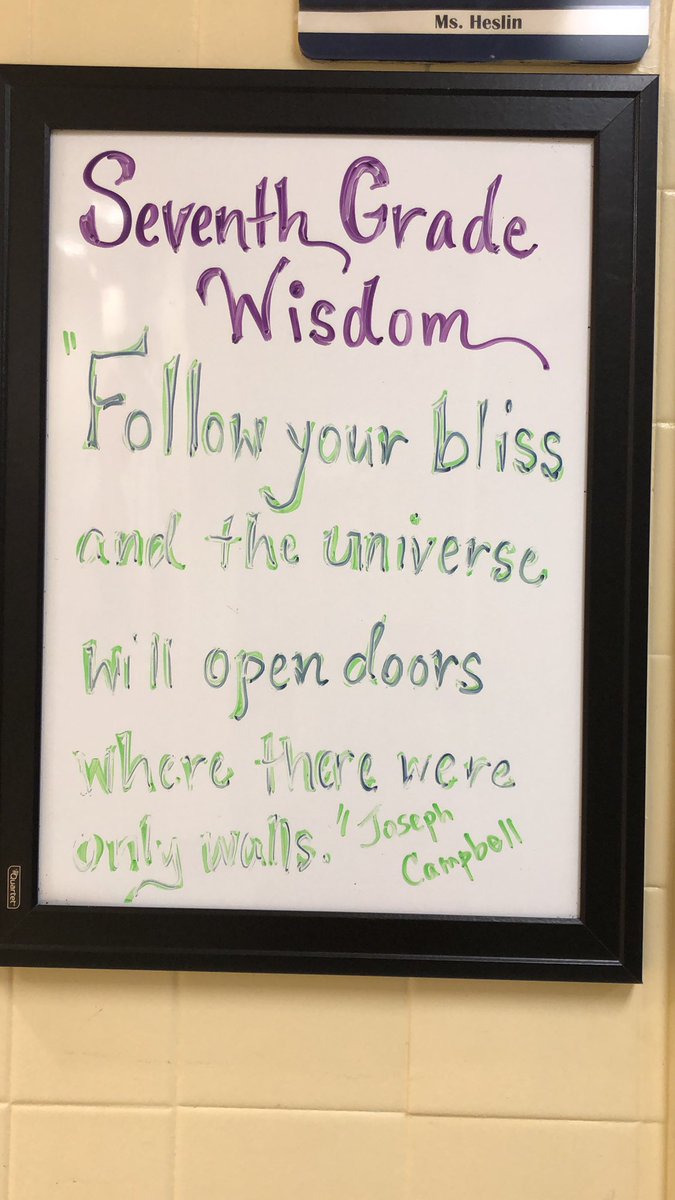 Ms. Heslin
Seventh Grade
Wisdom
"Follow your bliss
and the universe
will open doors
where there were
only walls." Joseph
Campbell
Quartet